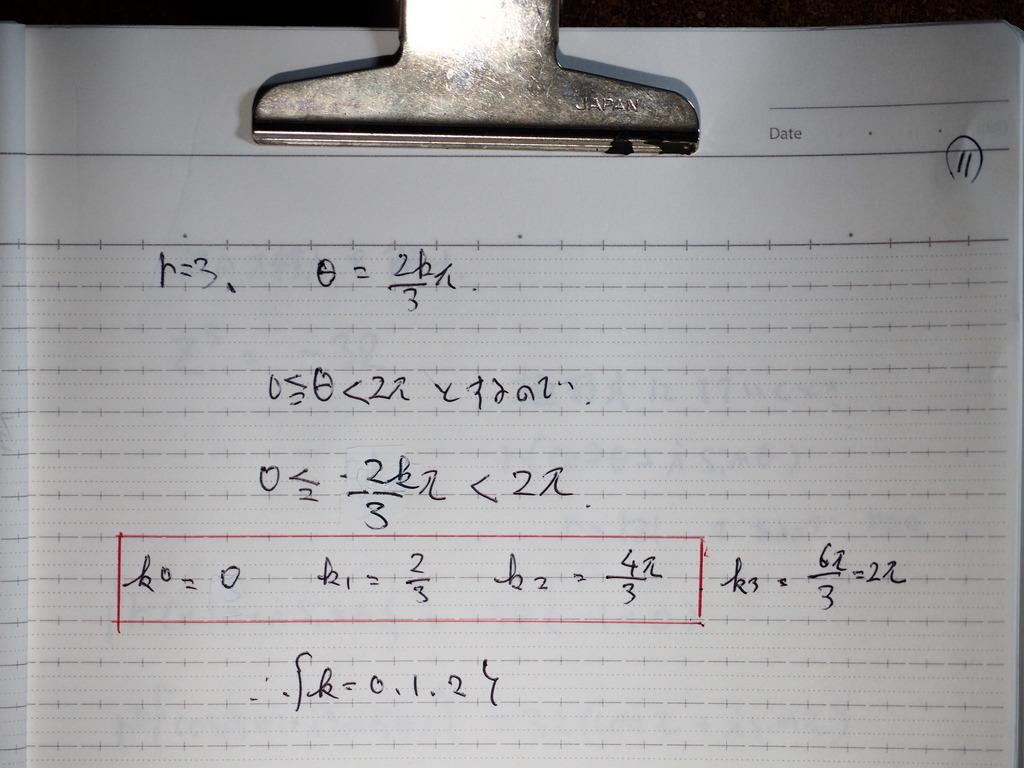 JAPAN
Date
11
r=3、 θ = 2k/3 π.
0≦θ<2π とするので.
0≦ 2k/3 π < 2π.
k0 = 0 k1 = 2/3 k2 = 4π/3 k3 = 6π/3 = 2π
∴{k=0.1.2}